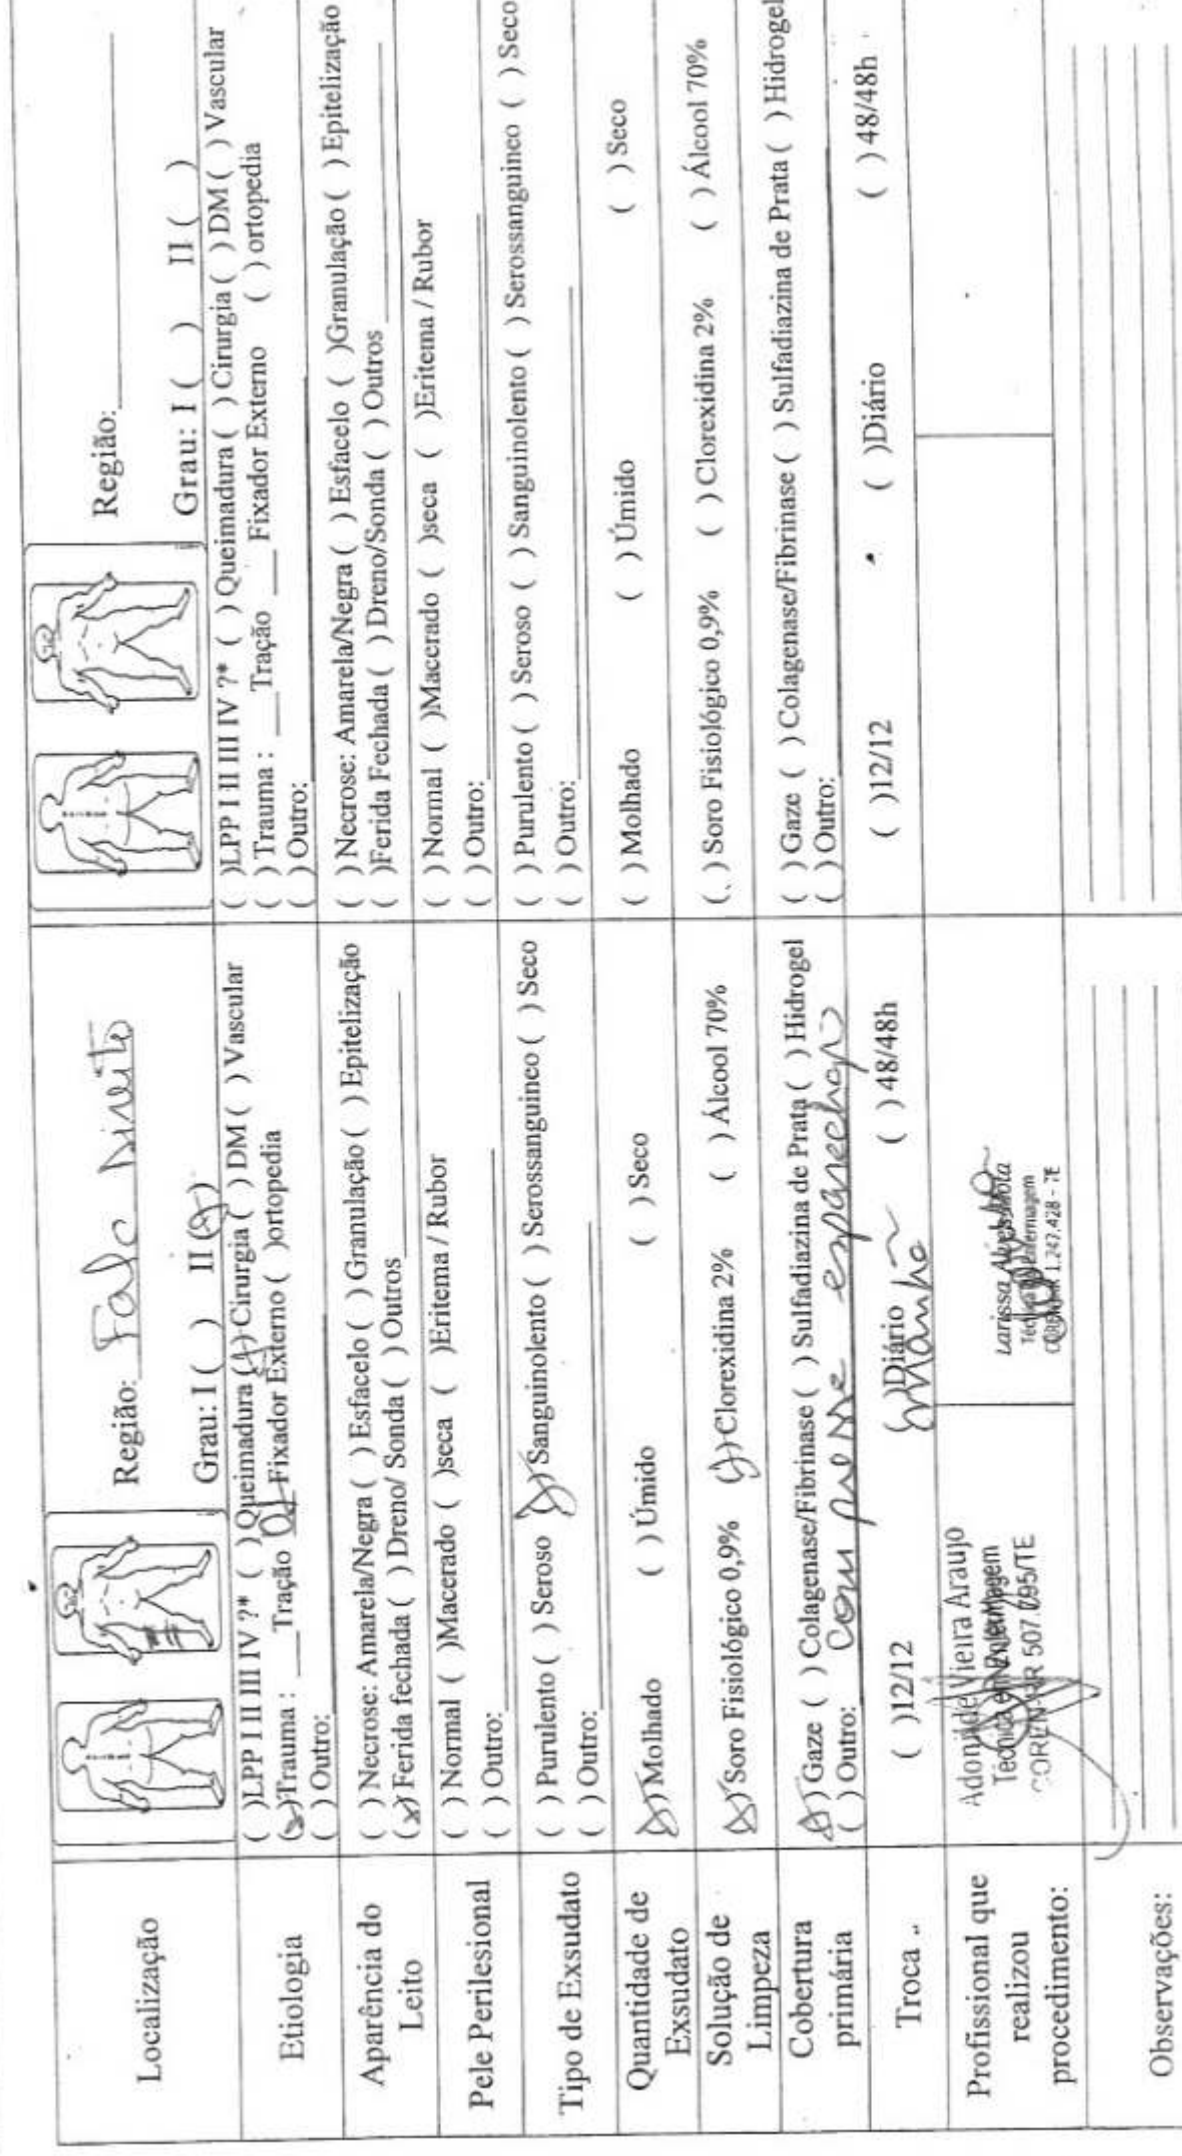 Localização
Região: Falo Direito
Grau: I ( ) II (x)
Região:
Grau: I ( ) II ( )
Etiologia
( )LPP I II III IV ?* ( ) Queimadura (x) Cirurgia ( ) DM ( ) Vascular
(x)Trauma : ___Tração ___Fixador Externo ( )ortopedia
( ) Outro:
( )LPP I II III IV ?* ( ) Queimadura ( ) Cirurgia ( ) DM ( ) Vascular
( ) Trauma : ___Tração ___Fixador Externo ( ) ortopedia
( ) Outro:
Aparência do
Leito
( ) Necrose: Amarela/Negra ( ) Esfacelo ( ) Granulação ( ) Epitelização
(x) Ferida fechada ( ) Dreno/ Sonda ( ) Outros
( ) Necrose: Amarela/Negra ( ) Esfacelo ( )Granulação ( ) Epitelização
( )Ferida Fechada ( ) Dreno/Sonda ( ) Outros
Pele Perilesional
( ) Normal ( )Macerado ( )seca ( )Eritema / Rubor
( ) Outro:
( ) Normal ( )Macerado ( )seca ( )Eritema / Rubor
( ) Outro:
Tipo de Exsudato
( ) Purulento ( ) Seroso (x)Sanguinolento ( ) Serossanguineo ( ) Seco
( ) Outro:
( ) Purulento ( ) Seroso ( ) Sanguinolento ( ) Serossanguineo ( ) Seco
( ) Outro:
Quantidade de
Exsudato
(x)Molhado ( ) Úmido ( ) Seco
( ) Molhado ( ) Úmido ( ) Seco
Solução de
Limpeza
(x)Soro Fisiológico 0,9% (x)Clorexidina 2% ( ) Álcool 70%
( ) Soro Fisiológico 0,9% ( ) Clorexidina 2% ( ) Álcool 70%
Cobertura
primária
(x)Gaze ( ) Colagenase/Fibrinase ( ) Sulfadiazina de Prata ( ) Hidrogel
( ) Outro: compresse
( ) Gaze ( ) Colagenase/Fibrinase ( ) Sulfadiazina de Prata ( ) Hidrogel
( ) Outro:
Troca
( )12/12 ( )Diário ( ) 48/48h
manha
( )12/12 ( )Diário ( ) 48/48h
Profissional que
realizou
procedimento:
Vieira Araujo
Técnica em Enfermagem
COREN-RR 507.795/TE
Larissa
1.247.428 - TE
Observações: